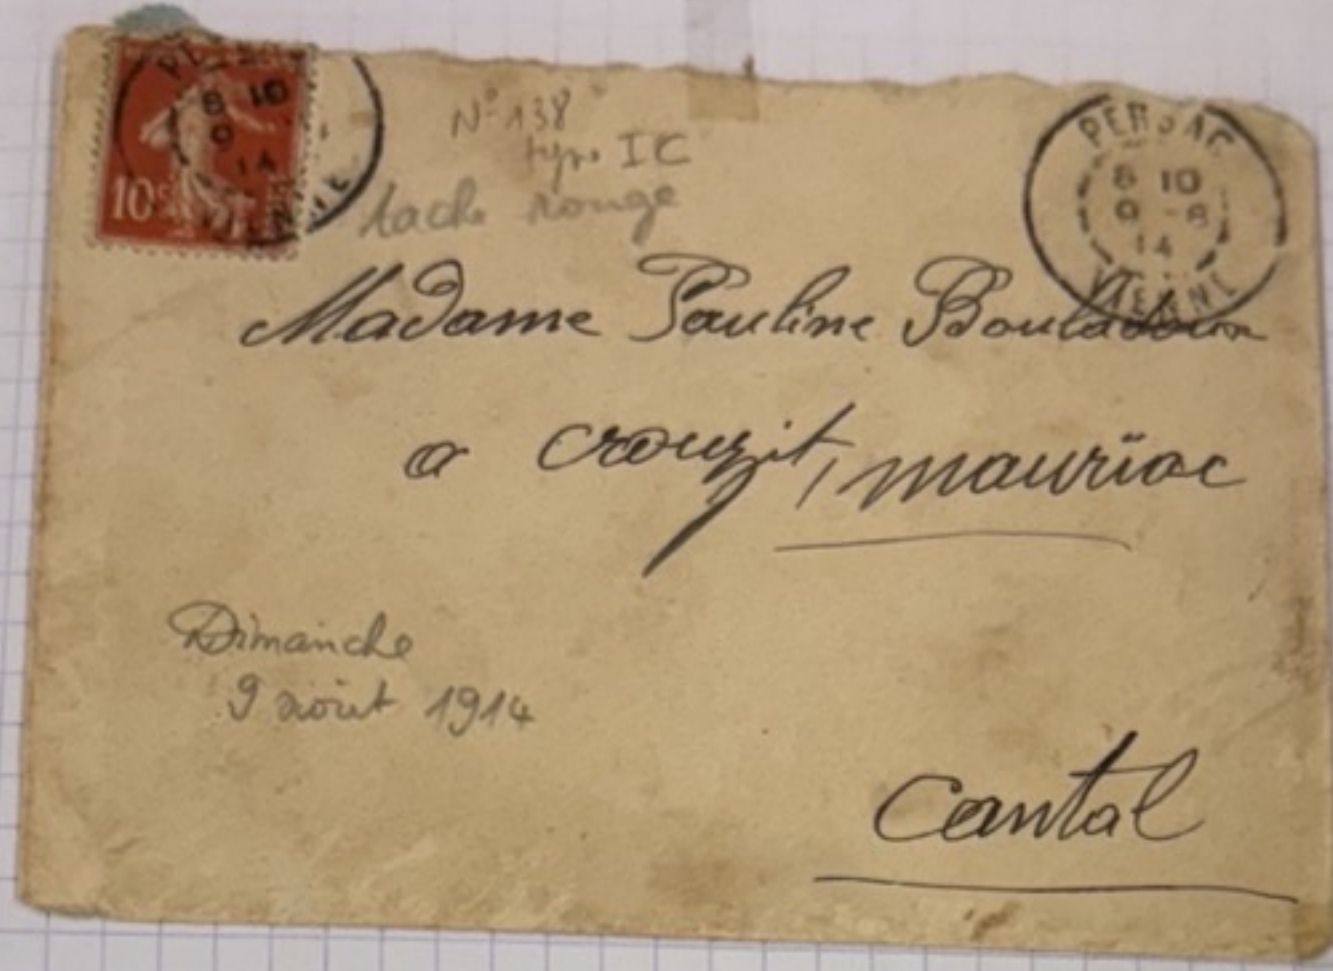 10c
N° 138
type IC
tache rouge
PERSAC
8 10
9 -8
14
VIENNE
Madame Pauline Bouladoux
a crouzit, mauriac
Dimanche
9 août 1914
Cantal